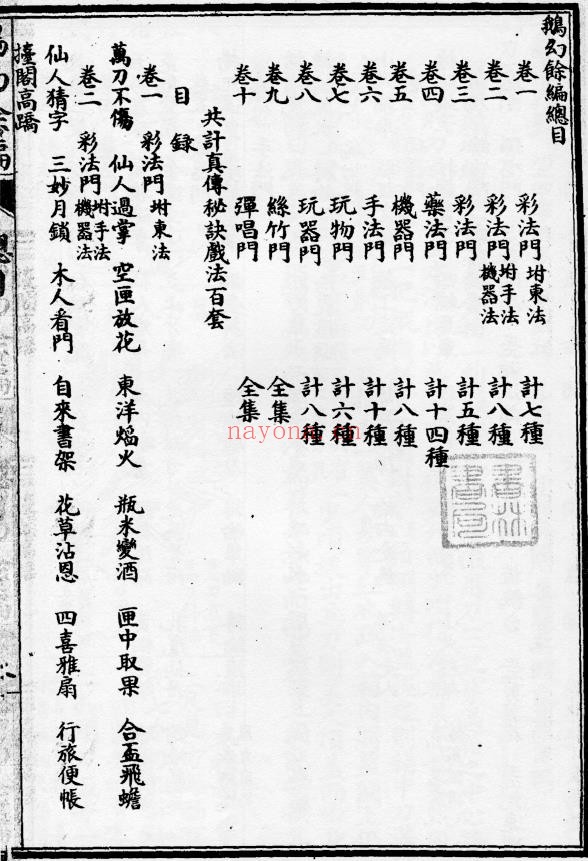 鵝幻餘編總目
卷一 彩法門 坿東法 計七種
卷二 彩法門 坿手法 機器法 計八種
卷三 彩法門 計五種
卷四 藥法門 計十四種
卷五 機器門 計八種
卷六 手法門 計十種
卷七 玩物門 計六種
卷八 玩器門 計八種
卷九 絲竹門 全集
卷十 彈唱門 全集
共計真傳秘訣戲法百套
目錄
卷一 彩法門 坿東法
萬刀不傷 仙人過掌 空匣放花 東洋熖火 瓶米變酒 匣中取果 合盃飛蟾
卷二 彩法門 坿手法 機器法
仙人猜字 三妙月鎖 木人看門 自來書架 花草沾恩 四喜雅扇 行旅便帳
擡閣高蹻
nayona.cn